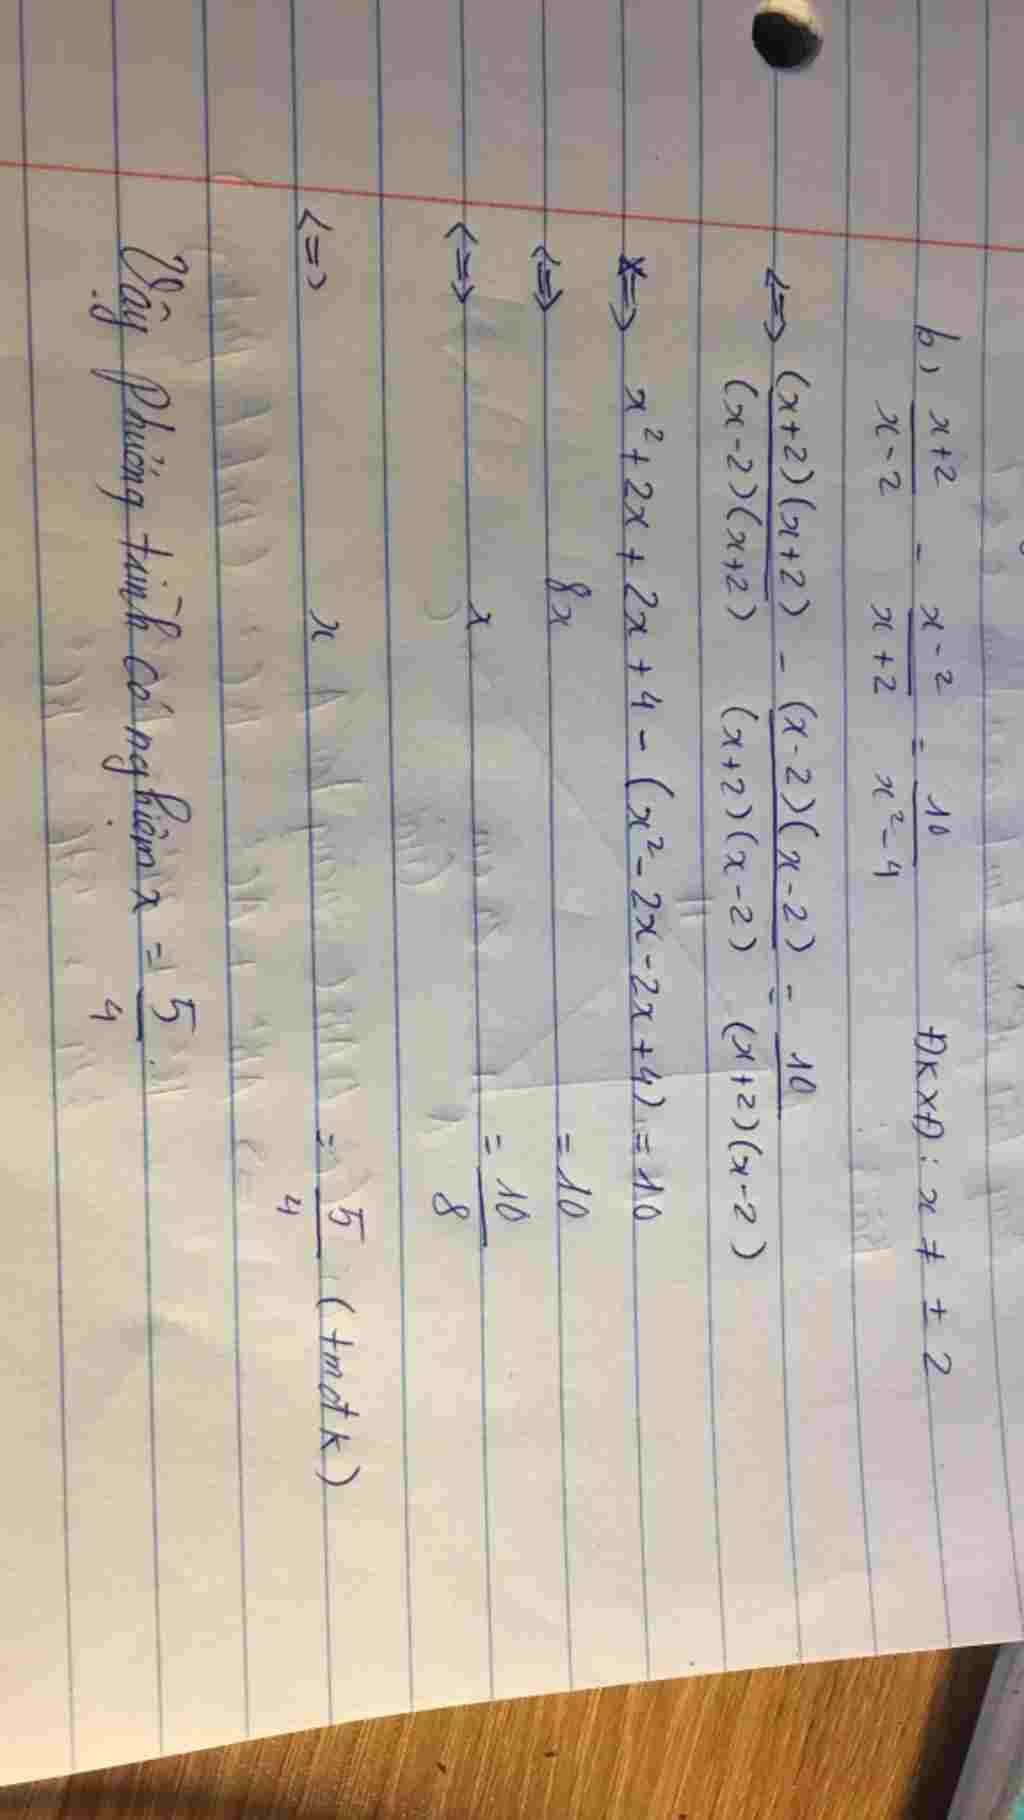 b) (x+2)/(x-2) - (x-2)/(x+2) = 10/(x²-4) ĐKXĐ: x ≠ ±2
<=> (x+2)(x+2)/(x-2)(x+2) - (x-2)(x-2)/(x+2)(x-2) = 10/(x+2)(x-2)
<=> x² + 2x + 2x + 4 - (x² - 2x - 2x + 4) = 10
<=> 8x = 10
<=> x = 10/8
<=> x = 5/4 (tmđk)
Vậy phương trình có nghiệm x = 5/4